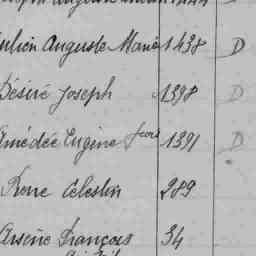 Julien Auguste Marie 1438 D
Désiré Joseph 1398 D
Amédée Eugène 1391 D
Pierre Célestin 289
Arsène François 34